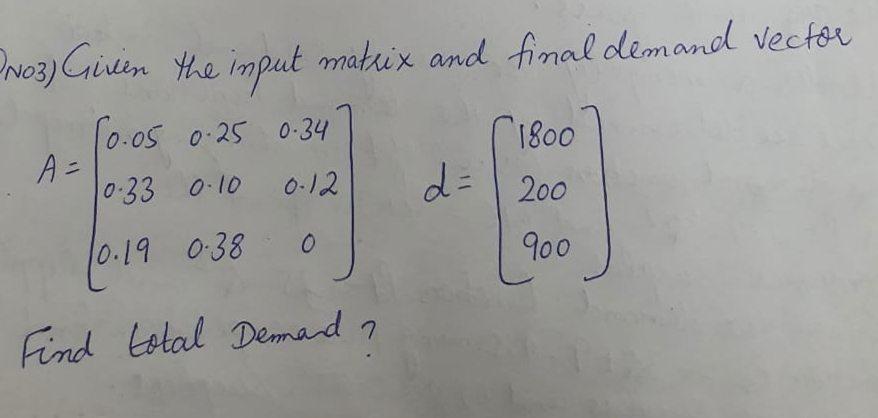 QNO3) Given the input matrix and final demand vector
A = [0.05 0.25 0.34
0.33 0.10 0.12
0.19 0.38 0] d = [1800
200
900]
Find total Demand ?